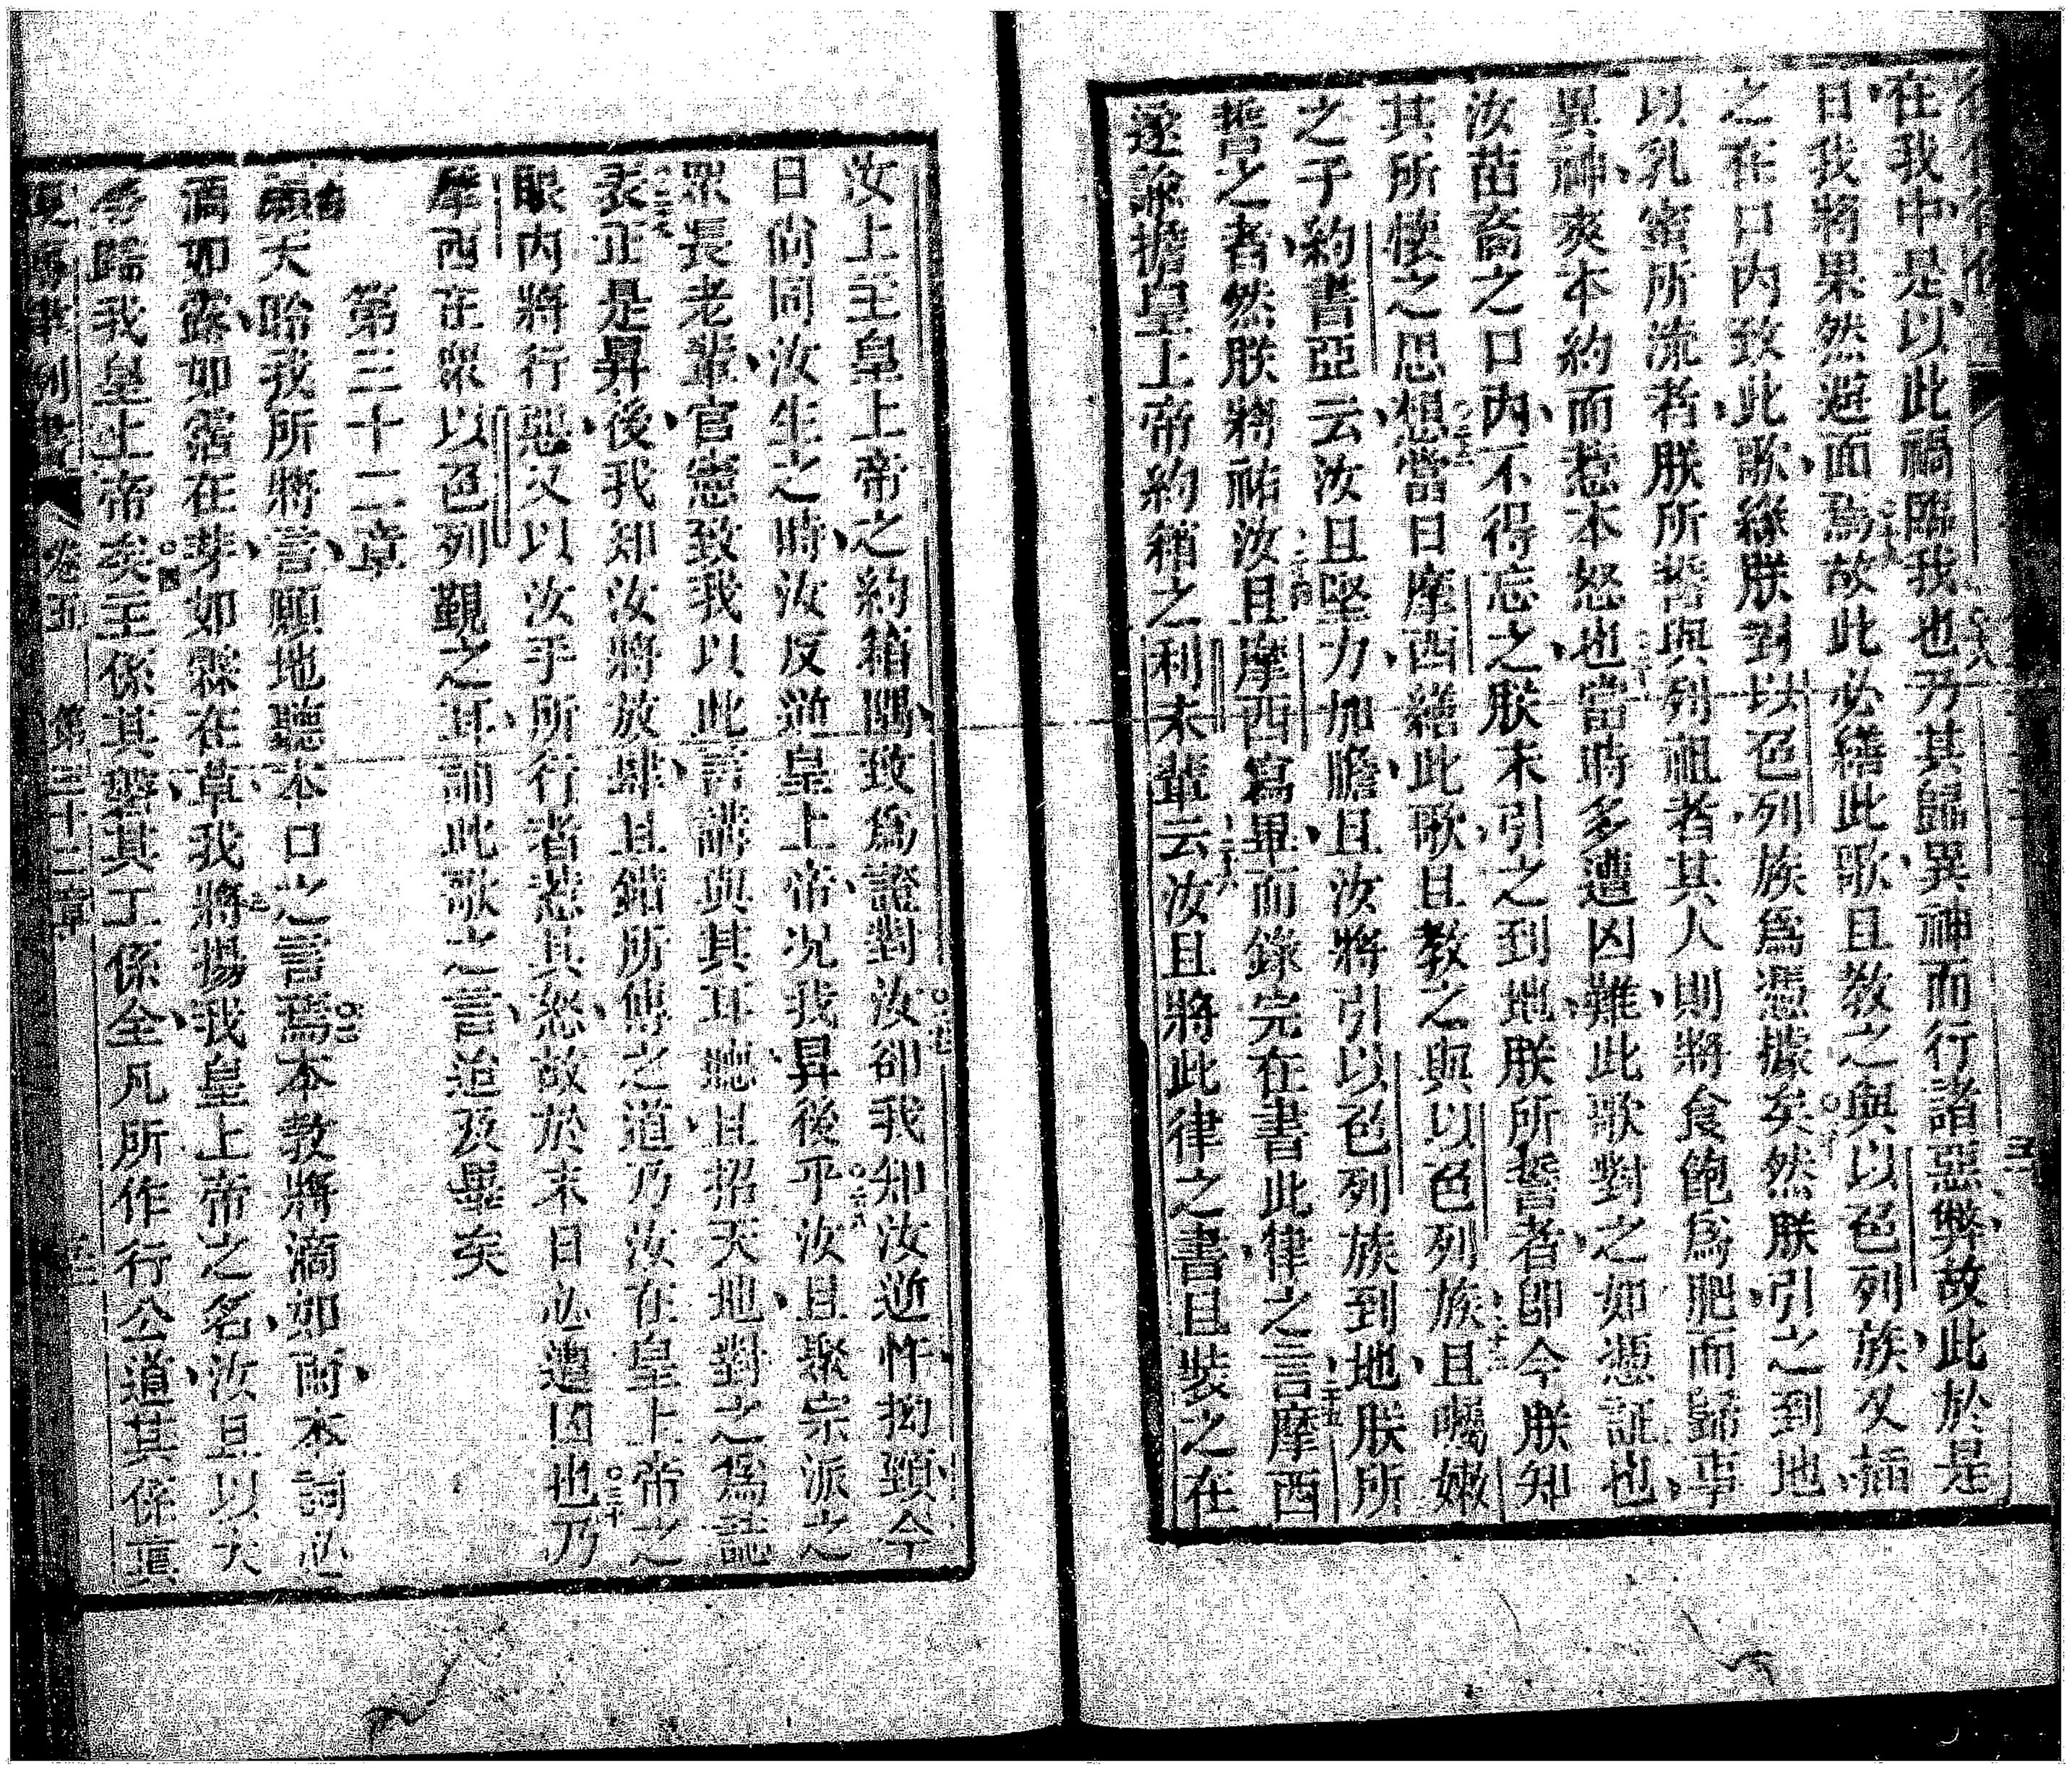 在我中是以此禍臨我也乃其歸異神而行諸惡弊故此於是
日我將果然避面焉○十九故此必繕此歌且敎之與以色列族又插
之在口內致此歌緣朕對以色列族爲憑據矣○二十然朕引之到地
以乳蜜所流者朕所誓與列祖者其人則將食飽爲肥而歸事
異神爽本約而惹本怒也○二十一當時多遭凶難此歌對之如憑証也
汝苗裔之口內不得忘之朕未引之到地朕所誓者卽今朕知
其所懷之思想○二十二當日摩西繕此歌且敎之與以色列族○二十三且囑嫩
之子約書亞云汝且堅力加膽且汝將引以色列族到地朕所
誓之者然朕將祐汝且○二十四摩西寫畢而錄完在書此律之言○二十五摩西
遂諭擔皇上帝約箱之利未輩云○二十六汝且將此律之書且裝之在
汝上主皇上帝之約箱隅致爲證對汝○二十七卻我知汝逆忤拗頸今
日尙同汝生之時汝反逆皇上帝况我昇後乎○二十八汝且聚宗派之
眾長老輩官憲致我以此言講與其耳聽且招天地對之爲誌
表○二十九正是昇後我知汝將放肆且錯所傳之道乃汝在皇上帝之
眼內將行惡又以汝手所行者惹其怒故於末日必遭凶也○三十乃
摩西在眾以色列親之耳誦此歌之言迨及畢矣
第三十二章
天聆我所將言願地聽本口之言焉○二本敎將滴如雨本詞必
滴如露如霑在芽如霖在草○三我將揚我皇上帝之名汝且以大
歸我皇上帝矣○四主係其磐其工係全凡所作行公道其係眞
卷五 第三十二章